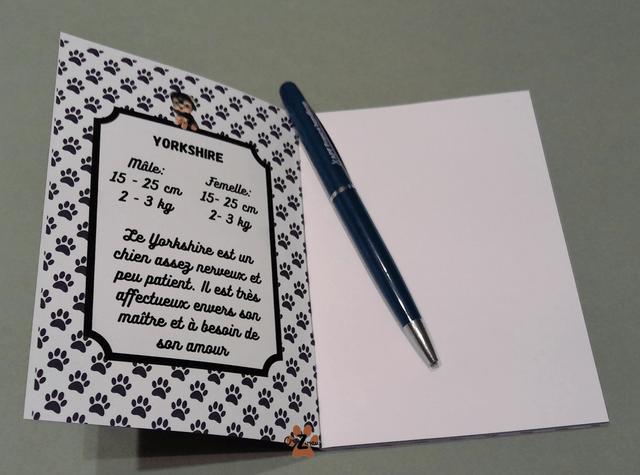 YORKSHIRE
Mâle:
15 - 25 cm
2 - 3 kg
Femelle:
15- 25 cm
2- 3 kg
Le Yorkshire est un
chien assez nerveux et
peu patient. Il est très
affectueux envers son
maître et à besoin de
son amour